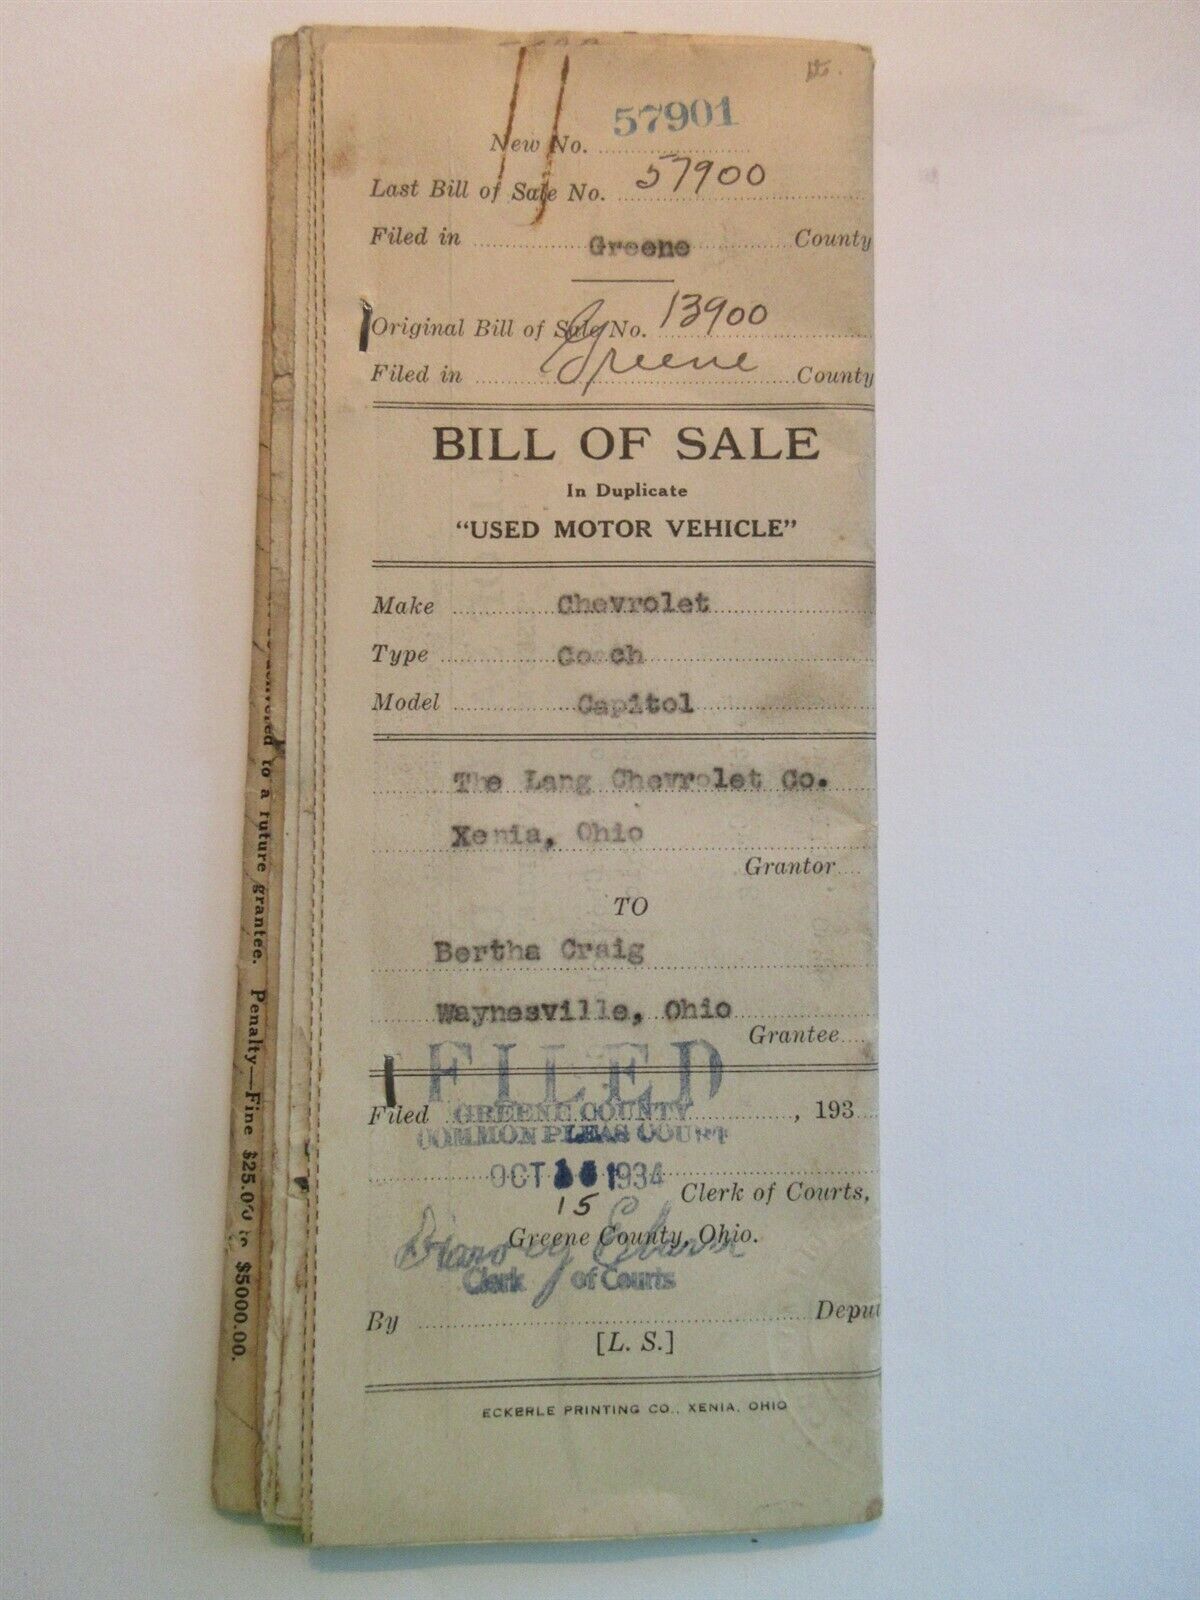 New No. 57901
Last Bill of Sale No. 57900
Filed in Greene County
Original Bill of Sale No. 13900
Filed in Greene County
BILL OF SALE
In Duplicate
"USED MOTOR VEHICLE"
Make Chevrolet
Type Coach
Model Capitol
The Lang Chevrolet Co.
Xenia, Ohio
Grantor
TO
Bertha Craig
Waynesville, Ohio
Grantee
FILED
Filed GREENE COUNTY , 193
COMMON PLEAS COURT
OCT 1934
15
Clerk of Courts,
Greene County, Ohio.
Clerk of Courts
By Deput
[L. S.]
ECKERLE PRINTING CO., XENIA, OHIO
to a future grantee. Penalty—Fine $25.00 $5000.00.